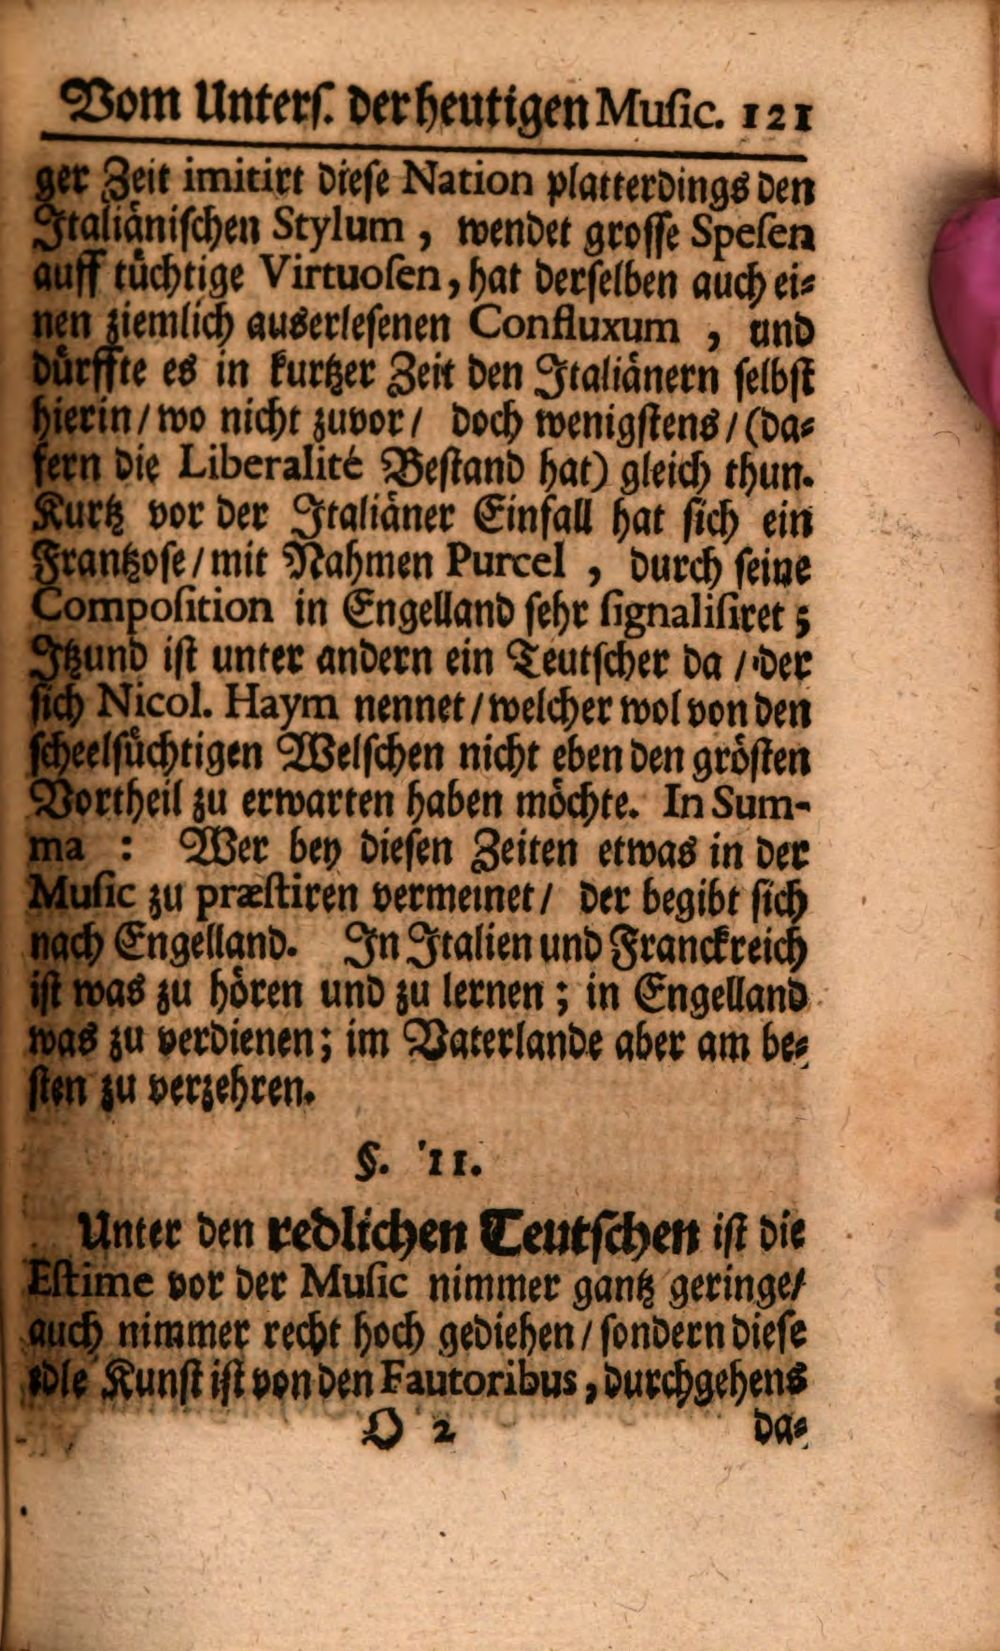 Vom Unters. der heutigen Music. 121
ger Zeit imitirt diese Nation platterdings den
Italiänischen Stylum, wendet grosse Spesen
auff tüchtige Virtuosen, hat derselben auch ei-
nen ziemlich auserlesenen Confluxum, und
dürffte es in kurtzer Zeit den Italiänern selbst
hierin/ wo nicht zuvor/ doch wenigstens/ (da-
fern die Liberalité Bestand hat) gleich thun.
Kurtz vor der Italiäner Einfall hat sich ein
Frantzose/ mit Nahmen Purcel, durch seine
Composition in Engelland sehr signalisiret;
Itzund ist unter andern ein Teutscher da/ der
sich Nicol. Haym nennet/ welcher wol von den
scheelsüchtigen Welschen nicht eben den grösten
Vortheil zu erwarten haben möchte. In Sum-
ma: Wer bey diesen Zeiten etwas in der
Music zu præstiren vermeinet/ der begibt sich
nach Engelland. In Italien und Franckreich
ist was zu hören und zu lernen; in Engelland
was zu verdienen; im Vaterlande aber am be-
sten zu verzehren.
§. 11.
Unter den redlichen Teutschen ist die
Estime vor der Music nimmer gantz geringe/
auch nimmer recht hoch gediehen/ sondern diese
edle Kunst ist von den Fautoribus, durchgehens
O 2 da-